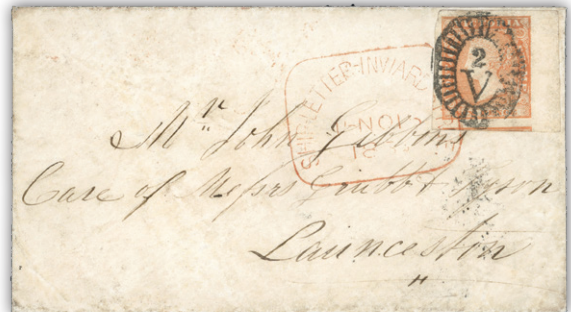 2
V
SHIP-LETTER-INWARD
NOV
18
Mr John Gibbons
Care of Messrs Grubb & Tyson
Launceston